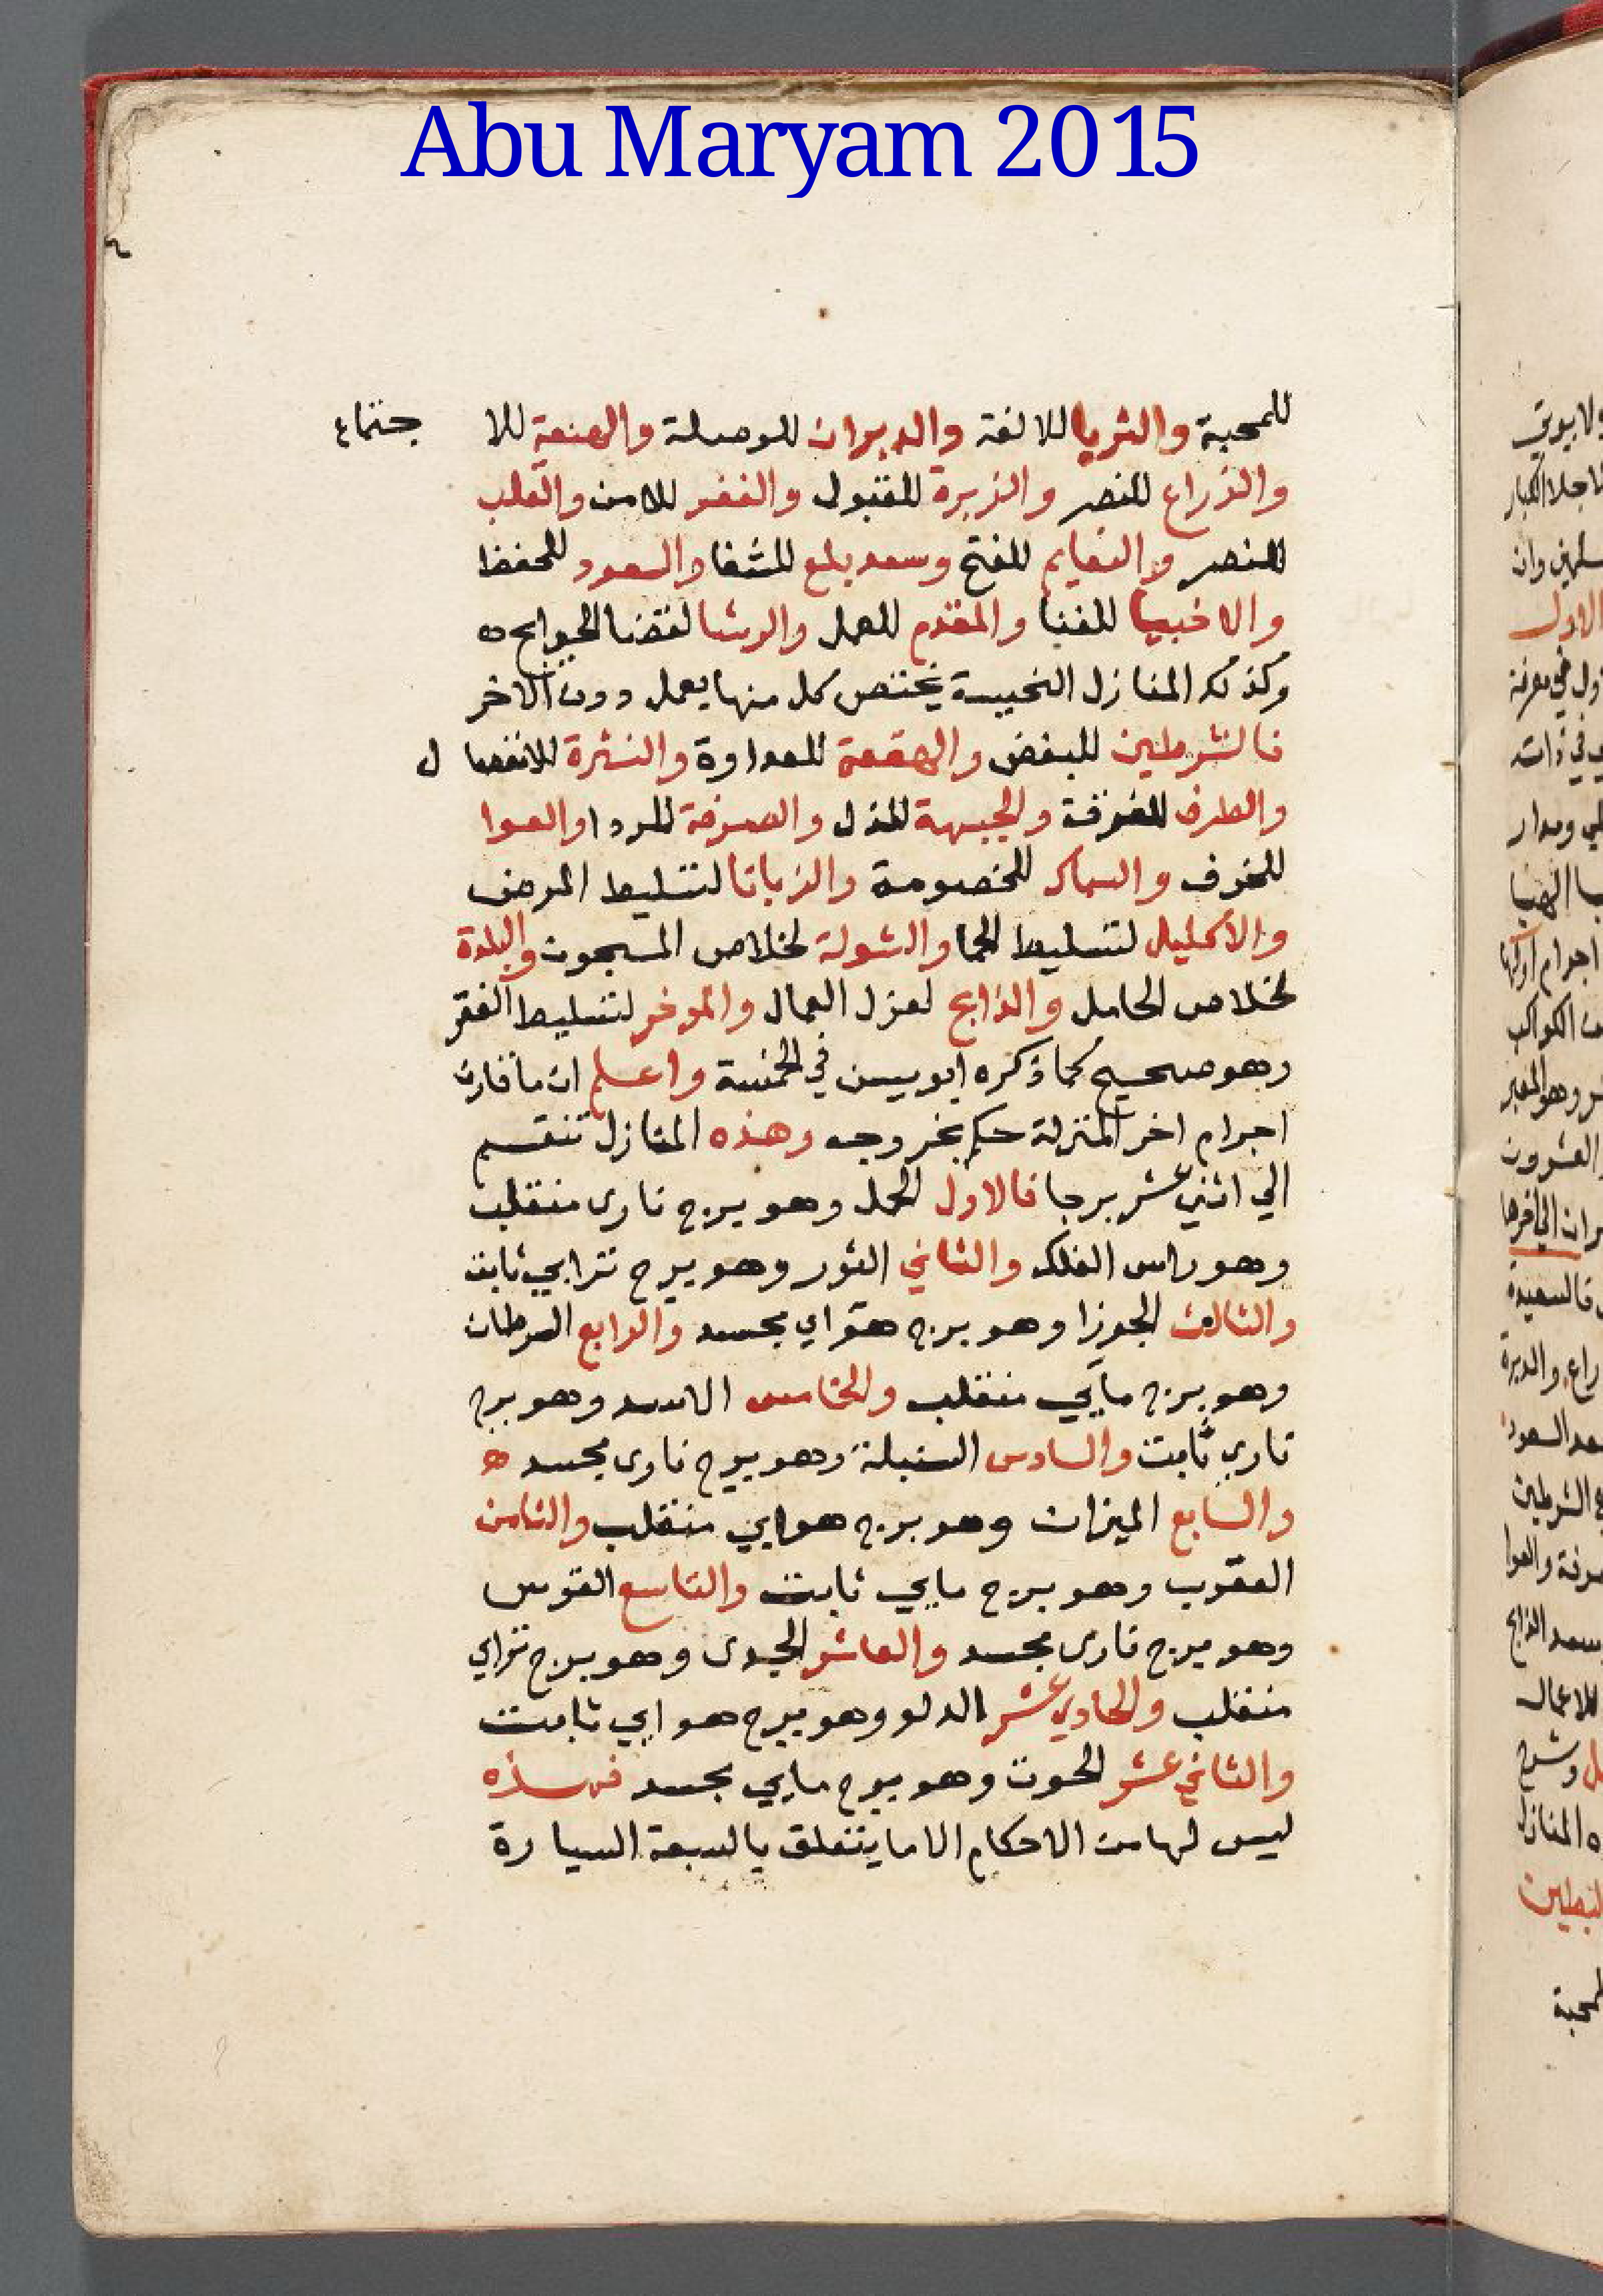 Abu Maryam 2015
للمحبة والثريا للالفة والدبران للوصلة والهنعة للا جتماع
والذراع للنصر والزبرة للقبول والغفر للامن والقلب
للنصر والنعايم للفتح وسعد بلع للشفا والسعود للحفظ
والاخبيا للغنا والمقدم للعمل والرشا لقضا الحوايج ه
وكذلك المنازل النحيسة يختص كل منها بعمل دون الاخر
فالشرطين للبغض والهقعة للعداوة والنثرة للانفصا ل
والطرف للفرقت والجبهة للذل والصرفة للردا والعوا
للخوف والسماك للخصومة والزبانا لتسليط المرض
والاكليل لتسليط الحما والشولة لخلاص المسجون والبلدة
لخلاص الحامل والذابح لعزل العمال والموخر لتسليط الفقر
وهو صحيح كما ذكره ابو يسن في الخمسة واعلم ان ما قارن
اجرام اخر المنزلة حكم بخروجه وهذه المنازل تنقسم
الي اثني عشر برجا فالاول الحمل وهو برج نارى منقلب
وهو راس الفلك والثاني الثور وهو برج ترابي ثابت
والثالث الجوزا وهو برج هواي مجسد والرابع السرطان
وهو برج مايي منقلب والخامس الاسد وهو برج
ناري ثابت والسادس السنبلة وهو برج نارى مجسد ه
والسابع الميزان وهو برج هوايي منقلب والثامن
العقرب وهو برج مايي ثابت والتاسع القوس
وهو برج نارى مجسد والعاشر الجدى وهو برج ترابي
منقلب والحادي عشر الدلو وهو برج هوايي ثابت
والثاني عشر الحوت وهو برج مايي مجسد فهذه
ليس لها من الاحكام الا ما يتعلق بالسبعة السيارة